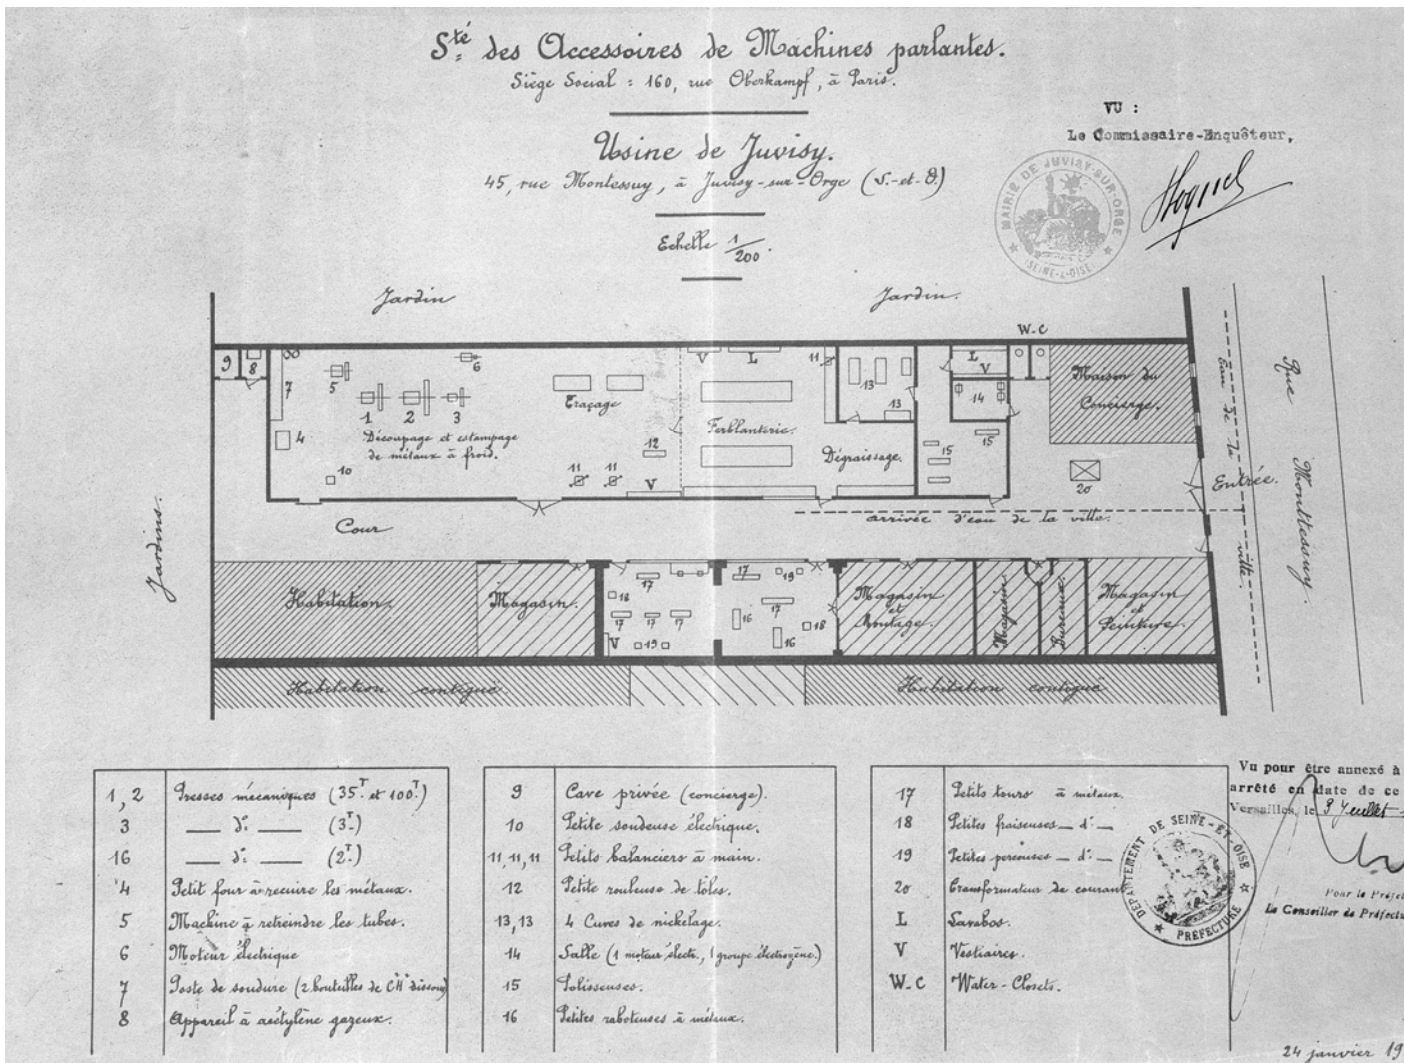 Sté des Accessoires de Machines parlantes.
Siège Social : 160, rue Oberkampf, à Paris.
Usine de Juvisy.
45, rue Montessuy, à Juvisy-sur-Orge (S.-et-O.)
Echelle 1/200.
VU :
Le Commissaire-Enquêteur,
MAIRIE DE JUVISY-SUR-ORGE
(SEINE-&-OISE)
Jardin
Jardin.
W-C
9
8
7
5
6
1
2
3
4
10
Découpage et estampage
de métaux à froid.
Traçage
12
11
11
V
V
L
11
Ferblanterie.
Dégraissage.
13
13
L
V
14
15
15
Maison du
Concierge.
20
Entrée.
Eau de la ville.
Rue Montessuy.
Jardins.
Cour
arrivée d'eau de la ville.
Habitation.
Magasin.
17
18
17
17
17
V
19
17
19
17
16
16
18
Magasin
et
Montage.
Magasin
Bureaux.
Magasin
et
Peinture.
Habitation contiguë.
Habitation contiguë
1, 2 Presses mécaniques (35T. et 100T.)
3 — d°: — (3T.)
16 — d°: — (2T.)
4 Petit four à recuire les métaux.
5 Machine à retreindre les tubes.
6 Moteur électrique
7 Poste de soudure (2 bouteilles de dissous)
8 Appareil à acétylène gazeux.
9 Cave privée (concierge).
10 Petite soudeuse électrique.
11, 11, 11 Petits balanciers à main.
12 Petite rouleuse de tôles.
13, 13 4 Cuves de nickelage.
14 Salle (1 moteur électr., 1 groupe électrogène.)
15 Polisseuses.
16 Petites raboteuses à métaux.
17 Petits tours à métaux.
18 Petites fraiseuses — d° —
19 Petites perceuses — d° —
20 Transformateur de courant
L Lavabos.
V Vestiaires.
W-C Water-Closets.
Vu pour être annexé à
arrêté en date de ce
Versailles, le 9 Juillet
DÉPARTEMENT DE SEINE-ET-OISE
PRÉFECTURE
Pour le Préfet
Le Conseiller de Préfectu
24 janvier 19